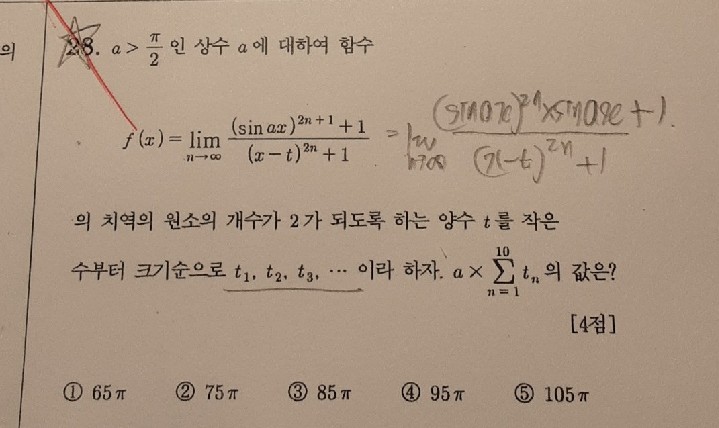 의
28. a > π/2 인 상수 a에 대하여 함수
f(x) = lim_{n→∞} ((sin ax)^{2n+1} + 1) / ((x-t)^{2n} + 1) = lim_{n→∞} ((sin ax)^{2n} × sin ax + 1) / ((x-t)^{2n} + 1)
의 치역의 원소의 개수가 2가 되도록 하는 양수 t를 작은
수부터 크기순으로 t₁, t₂, t₃, ⋯ 이라 하자. a × ∑_{n=1}^{10} tₙ의 값은?
[4점]
① 65π ② 75π ③ 85π ④ 95π ⑤ 105π